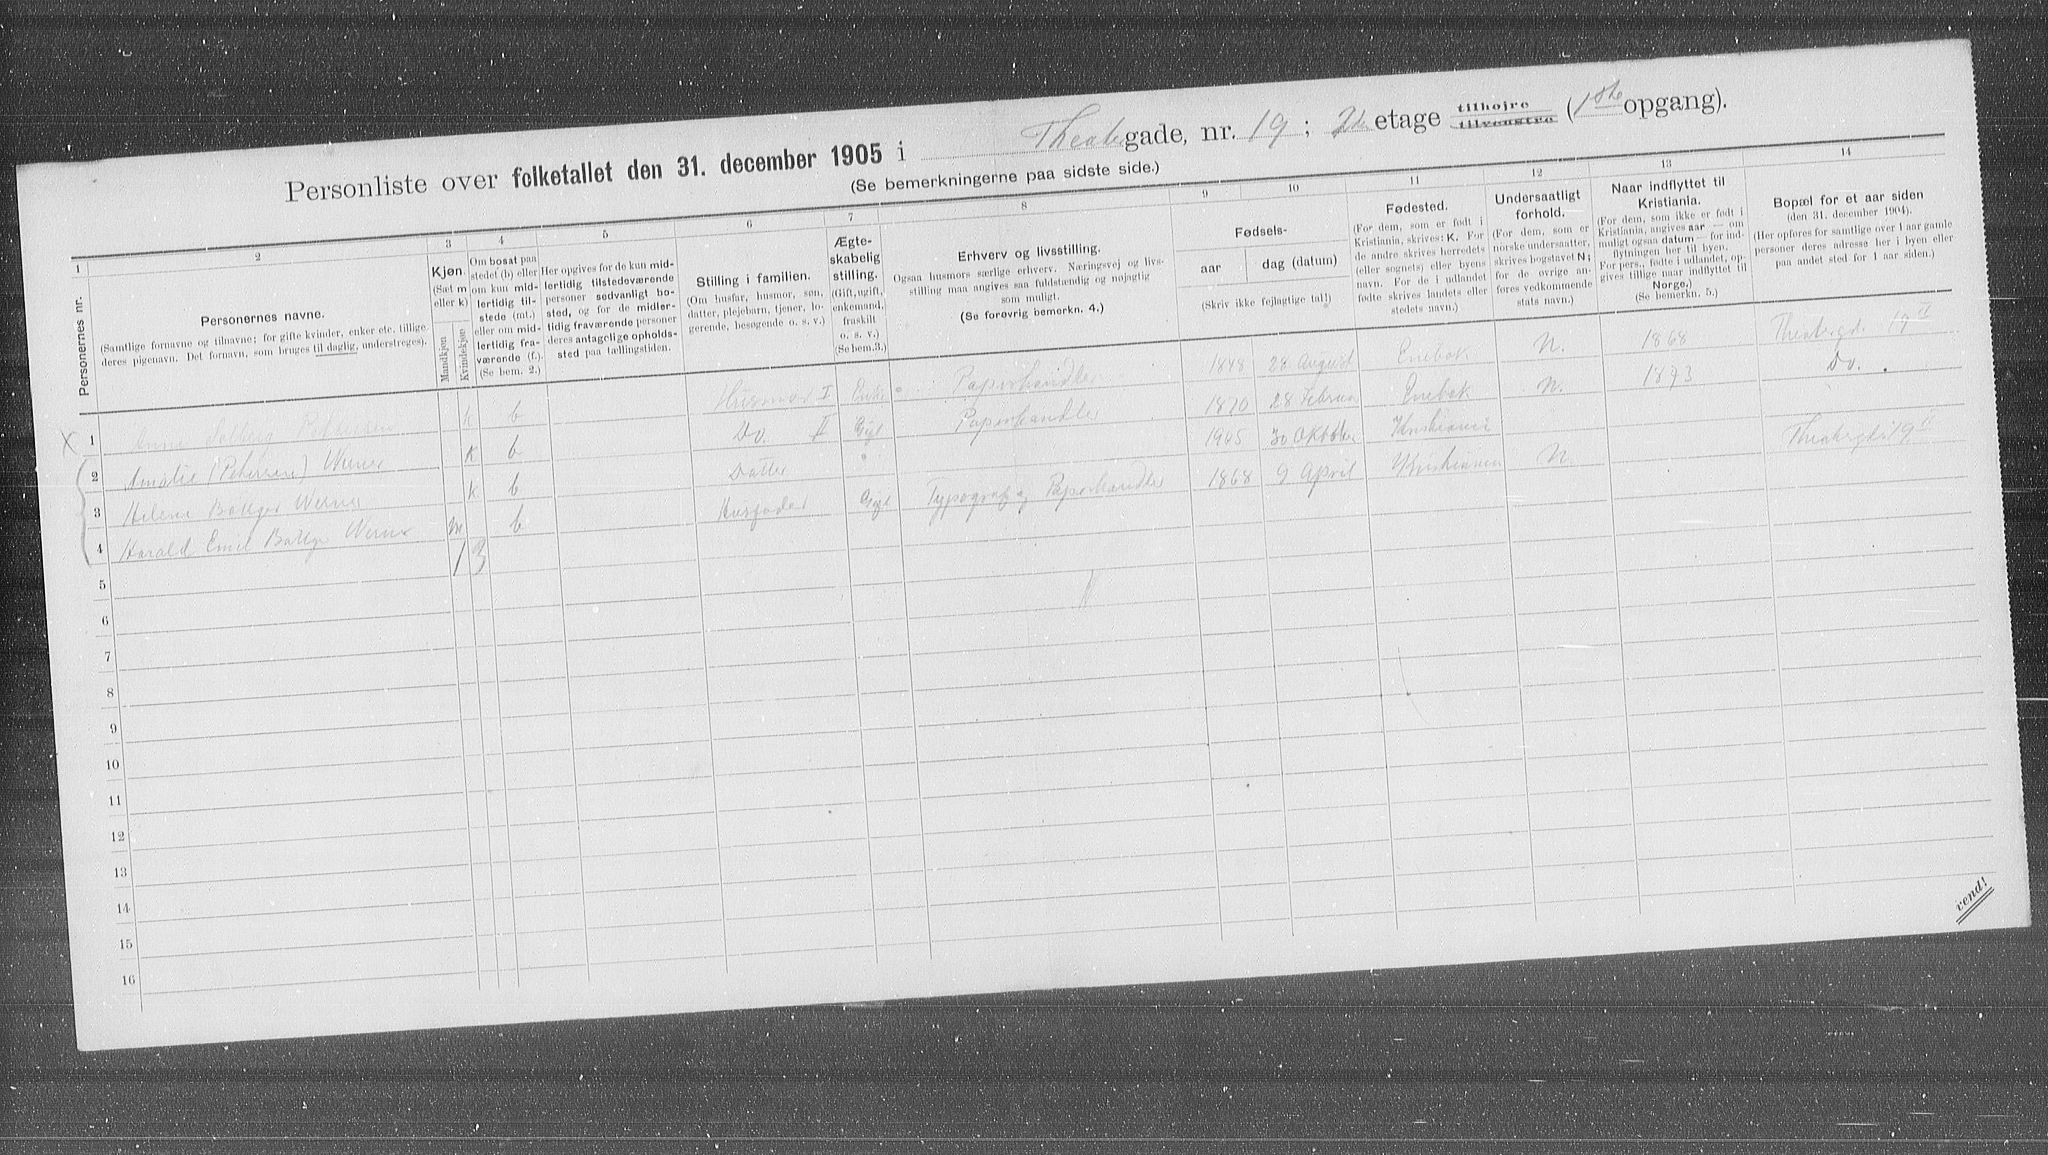 Personliste over folketallet den 31. december 1905 i Theatergade, nr. 19; 2den etage tilhøjre tilvenstre (1ste opgang).
(Se bemerkningerne paa sidste side.)
1 2 3 4 5 6 7 8 9 10 11 12 13 14
Personernes nr.
Personernes navne.
(Samtlige fornavne og tilnavne; for gifte kvinder, enker etc. tillige
deres pigenavn. Det fornavn, som bruges til daglig, understreges).
Kjøn
(Sæt m
eller k)
Mandkjøn
Kvindekjøn
Om bosat paa
stedet (b) eller
om kun mid-
lertidig til-
stede (mt.)
eller om mid-
lertidig fra-
værende (f.)
(Se bem. 2.)
Her opgives for de kun mid-
lertidig tilstedeværende
personer sedvanligt bo-
sted, og for de midler-
tidig fraværende personer
deres antagelige opholds-
sted paa tællingstiden.
Stilling i familien.
(Om husfar, husmor, søn,
datter, plejebarn, tjener, lo-
gerende, besøgende o. s. v.)
Ægte-
skabelig
stilling.
(Gift, ugift,
enkemand,
fraskilt
o. s. v.)
(Se bem.3.)
Erhverv og livsstilling.
Ogsaa husmors særlige erhverv. Næringsvej og livs-
stilling maa angives saa fuldstændig og nøjagtig
som muligt.
(Se forøvrig bemerkn. 4.)
Fødsels-
aar dag (datum)
(Skriv ikke fejlagtige tal!)
Fødested.
(For dem, som er født i
Kristiania, skrives: K. For
de andre skrives herredets
(eller sognets) eller byens
navn. For de i udlandet
fødte skrives landets eller
stedets navn.)
Undersaatligt
forhold.
(For dem, som er
norske undersaatter,
skrives bogstavet N;
for de øvrige an-
føres vedkommende
stats navn.)
Naar indflyttet til
Kristiania.
(For dem, som ikke er født i
Kristiania, angives aar — om
muligt ogsaa datum — for ind-
flytningen her til byen.
For pers., fødte i udlandet, op-
gives tillige naar indflyttet til
Norge.)
(Se bemerkn. 5.)
Bopæl for et aar siden
(den 31. december 1904).
(Her opføres for samtlige over 1 aar gamle
personer deres adresse her i byen eller
paa andet sted for 1 aar siden.)
X 1 Anne Solberg Pettersen k b Husmor I Enke Papirhandler 1848 28 August Enebak N. 1868 Theatergd. 19 II
2 Amalie (Petersen) Werner k b Do. II Gift Papirhandler 1870 28 Februar Enebak N. 1893 Do.
3 Helene Bøttger Werner k b Datter 1905 30 Oktober Kristiania
4 Harald Emil Bøttger Werner m b Husfader Gift Typograf og Papirhandler 1868 9 April Kristiania N Theatergd. 19 II
1 3
5
6
7
8
9
10
11
12
13
14
15
16
vend!